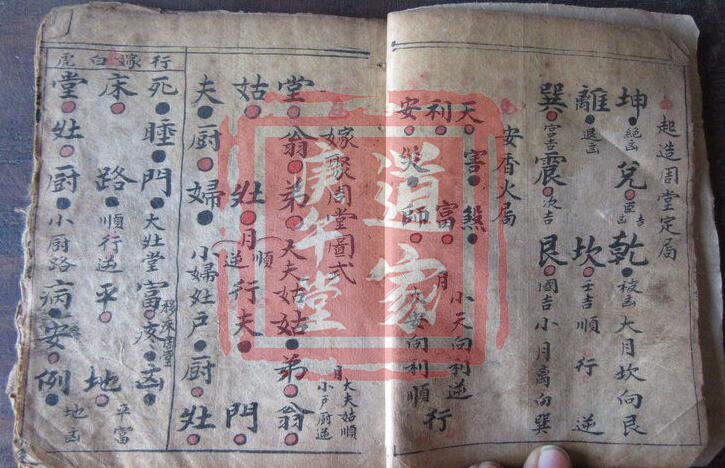 起造周堂定局
坤 兌 乾 大月坎向艮
絕凶 吉 凶
離 坎 順行逆
退凶 壬吉
巽 震 艮 小月离向巽
宮吉 次吉 國吉
安香火局
天 害 煞 小天向利逆
利 富 月 行
安 災 師 大安向利順
嫁娶周堂圖式
堂 翁 弟 大夫姑 姑 弟 翁
月大夫姑順
小戶厨逆
姑 灶 月順逆 行 夫 門
夫 厨 婦 小婦灶戶 厨 灶
行嫁白虎
死 睡 門 大灶堂 富 疾 凶
移床吉堂
床 路 順行逆 平 地
平富
堂 灶 厨 小厨路 病 安 例
地凶
道家
堂